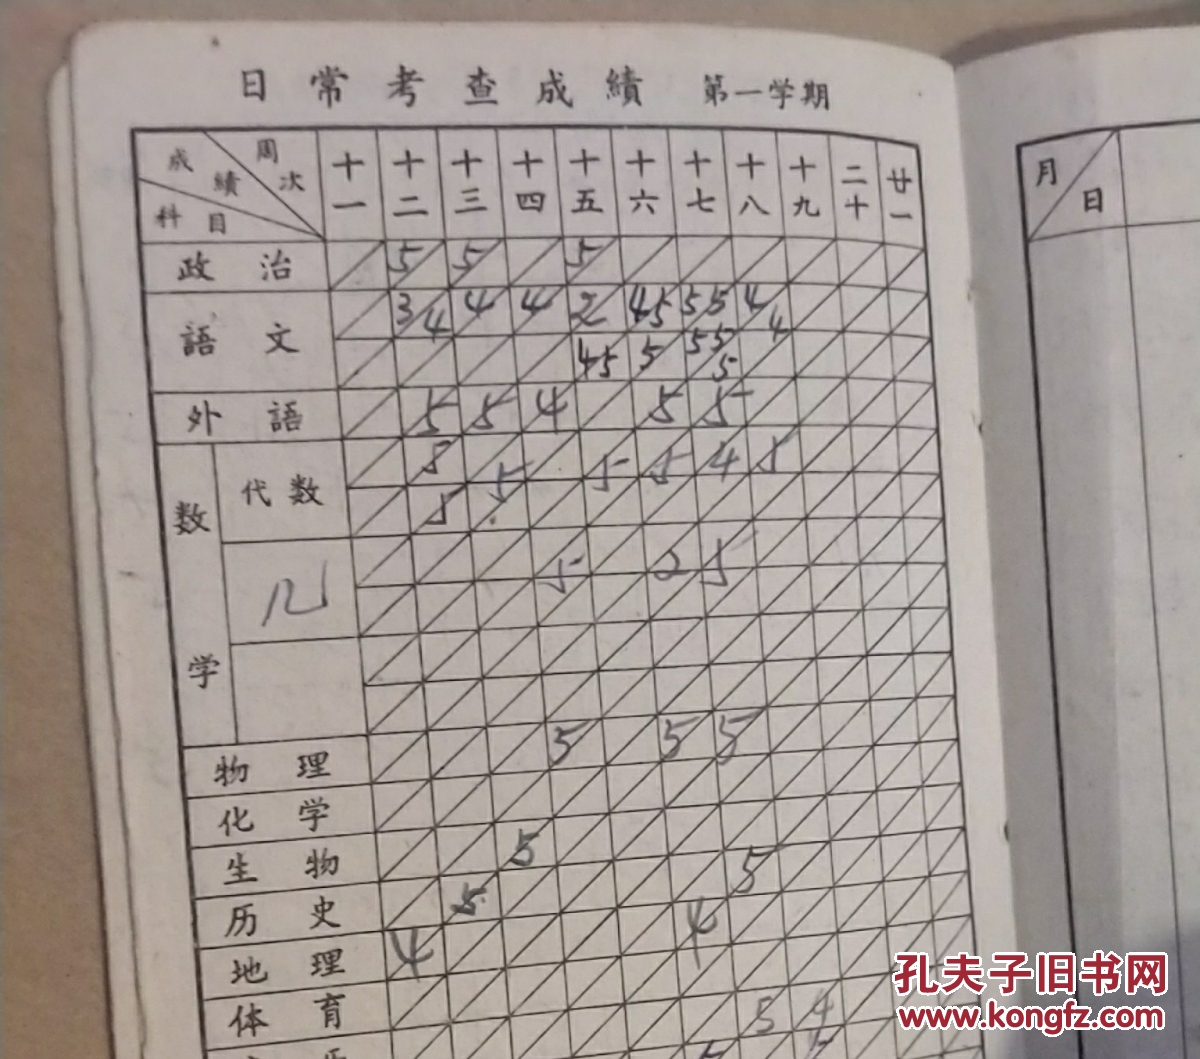 日常考查成績 第一学期
成績 周次 科目 十一 十二 十三 十四 十五 十六 十七 十八 十九 二十 廿一
政治 5 5 5
語文 3 4 4 4 2 4 5 5 5 4 4
4 5 5 5 5 5
外語 5 5 4 5 5
数学 代数 5 5 5 5 4 5
5
几 5 2 5
物理 5 5 5
化学
生物 5 5
历史 5 4
地理 4
体育 5 4
月日
孔夫子旧书网
www.kongfz.com